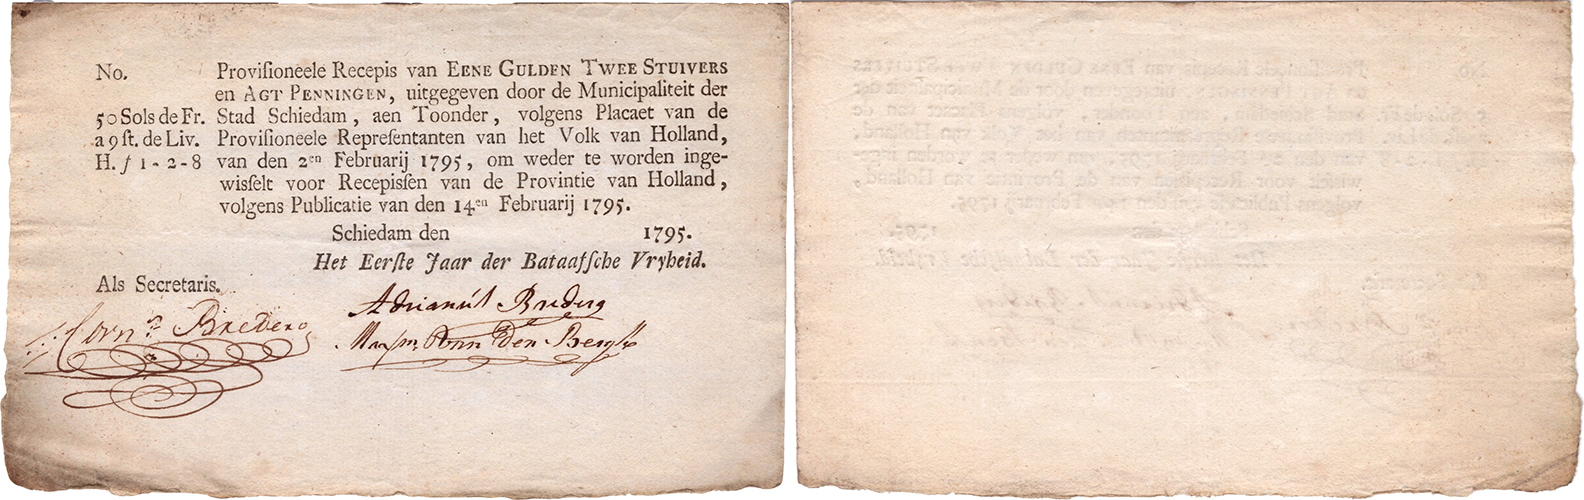 No. Provisioneele Recepis van EENE GULDEN TWEE STUIVERS
en AGT PENNINGEN, uitgegeven door de Municipaliteit der
50 Sols de Fr. Stad Schiedam, aen Toonder, volgens Placaet van de
a 9 st. de Liv. Provisioneele Representanten van het Volk van Holland,
H. ƒ 1-2-8 van den 2en Februarij 1795, om weder te worden inge-
wisselt voor Recepissen van de Provintie van Holland,
volgens Publicatie van den 14en Februarij 1795.
Schiedam den 1795.
Het Eerste Jaar der Bataafsche Vryheid.
Als Secretaris.
Corns. Bredero
Adrianus Bredero
van Den Bergh